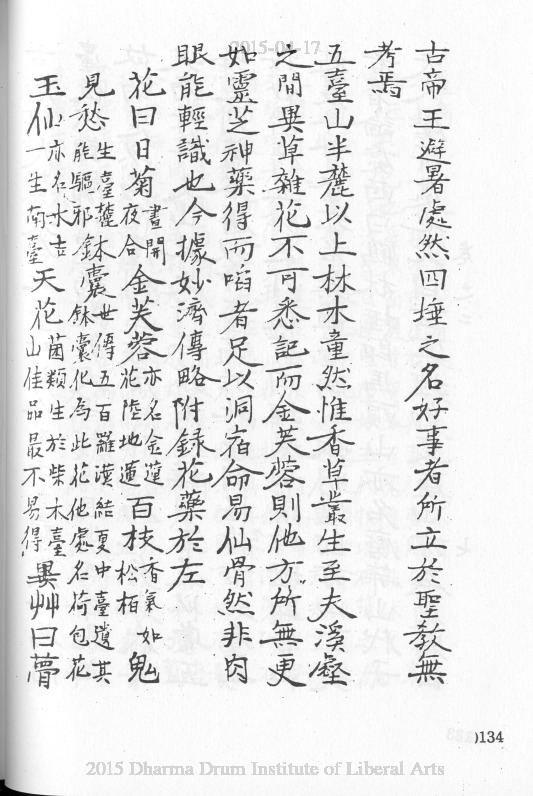 2015-04-17
古帝王避暑處然四埵之名好事者所立於聖教無
考焉
五臺山半麓以上林木童然惟香草叢生至夫溪壑
之間異草雜花不可悉記而金芙蓉則他方所無更
如靈芝神藥得而啗者足以洞宿命易仙骨然非肉
眼能輕識也今據妙濟傳略附錄花藥於左
花曰日菊晝開夜合金芙蓉亦名金蓮花陸地蓮百枝香氣如松栢鬼
見愁生臺麓能驅邪鉢囊世傳五百羅漢結夏中臺遺其鉢囊化為此花他處名荷包花
玉仙亦名水吉一生南臺天花菌類生於柴木臺山佳品最不易得異艸曰菅
)134
2015 Dharma Drum Institute of Liberal Arts